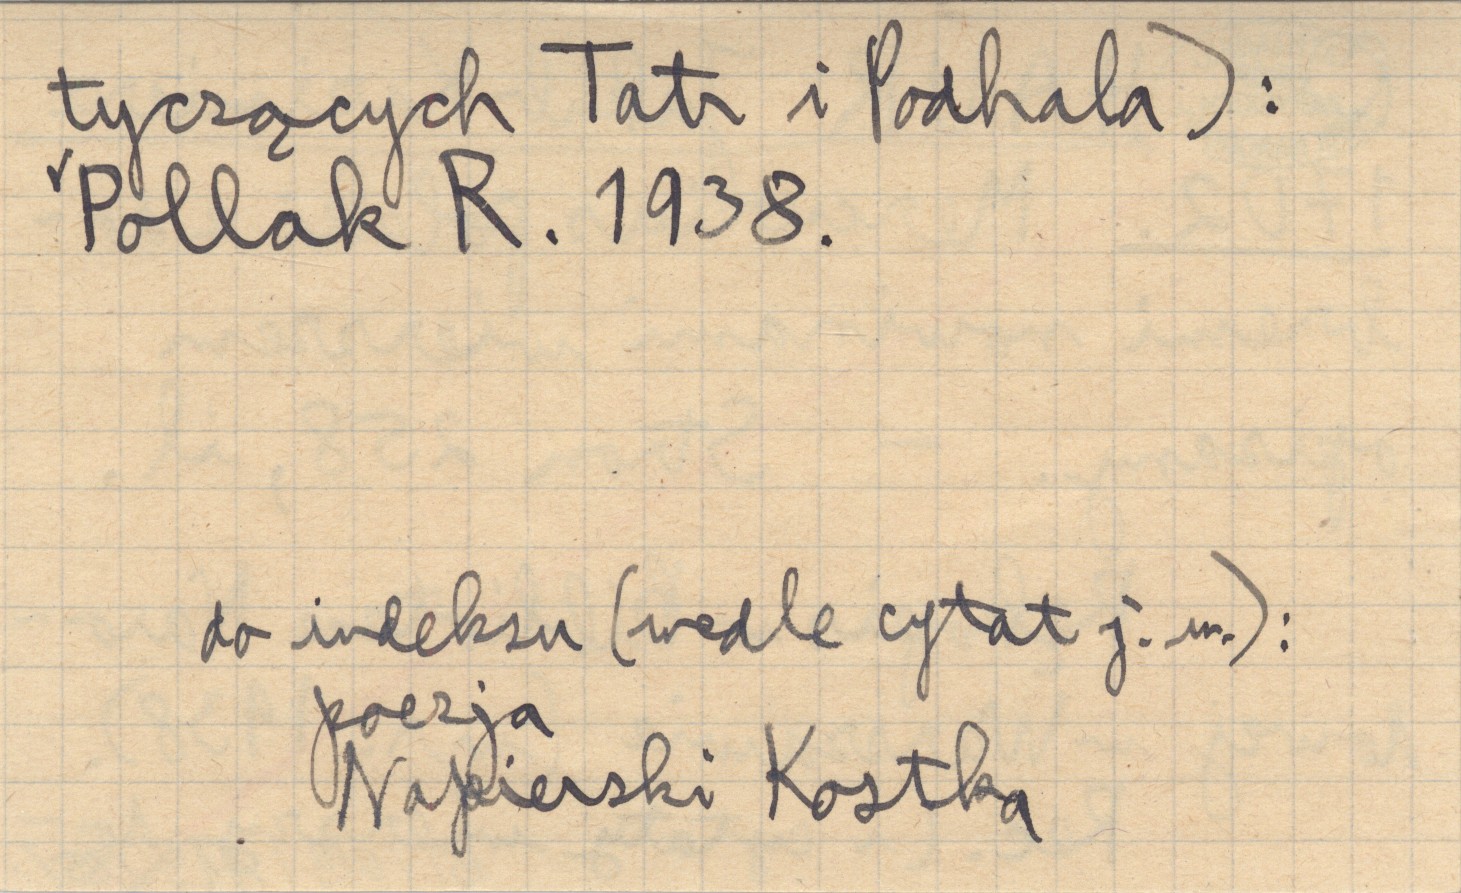 tyczących Tatr i Podhala):
✓Pollak R. 1938.
do indeksu (wedle cytat j. w.):
poezja
Napierski Kostka